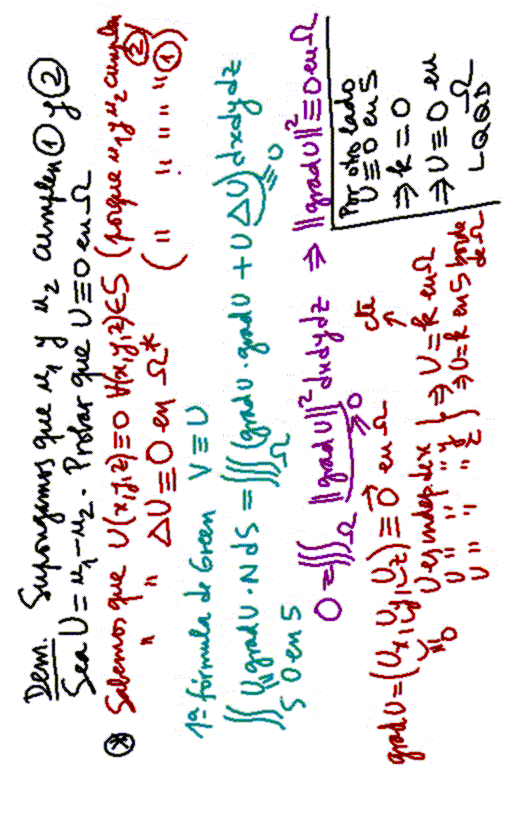 Dem. Supongamos que u₁ y u₂ cumplen ① y ②
Sea U = u₁ - u₂. Probar que U ≡ 0 en Ω
(*) Sabemos que U(x,y,z) = 0 ∀(x,y,z) ∈ S (porque u₁ y u₂ cumplen ②)
" " ΔU ≡ 0 en Ω* ( " " " " " ①)
1ª fórmula de Green V ≡ U
∬_S U grad U · N dS = ∭_Ω (grad U · grad U + U ΔU) dxdydz
" 0 en S
≡ 0
0 = ∭_Ω ||grad U||² dxdydz ⇒ ||grad U||² ≡ 0 en Ω
≥ 0
grad U = (Ux, Uy, Uz) ≡ 0⃗ en Ω
≡ 0
cte
U es indep. de x
U " " " y
U " " " z
} ⇒ U = k en Ω
⇒ U = k en S borde de Ω
Por otro lado
U ≡ 0 en S
⇒ k = 0
⇒ U ≡ 0 en Ω
LQQD